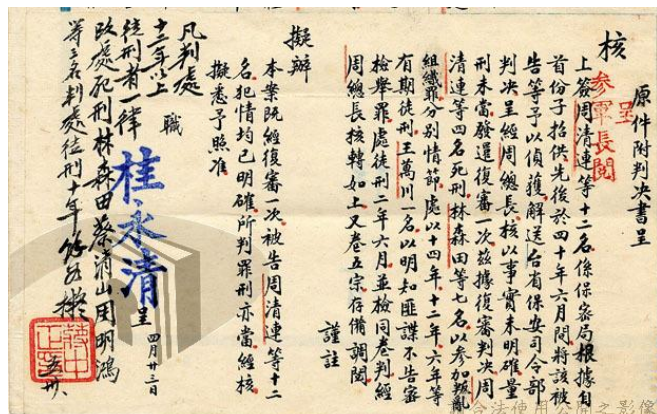 原件附判決書呈
核
呈
參軍長閱
上簽周清連等十二名係保密局根據自
首份子招供先後於四十年六月間將該被
告等予以偵獲解送台省保安司令部
判決呈經周總長核以事實未明確量
刑未當發還復審一次茲據復審判決周
清連等四名死刑林森田等七名以參加叛亂
組織罪分別情節處以十四年十二年六年等
有期徒刑王萬川一名以明知匪諜不告密
檢舉罪處徒刑二年六月並檢同卷判經
周總長核轉如上又卷五宗存備調閱
謹註
擬辦
本案既經復審一次被告周清連等十二
名犯情均已明確所判罪刑亦當經核
擬悉予照准
職
桂永清
呈
四月廿三日
凡判處
十二年以上
徒刑者一律
改處死刑林森田蔡清山周明鴻
等三名判處徒刑十年餘照擬
蔣中正印
五廿
合法使用公開之影像